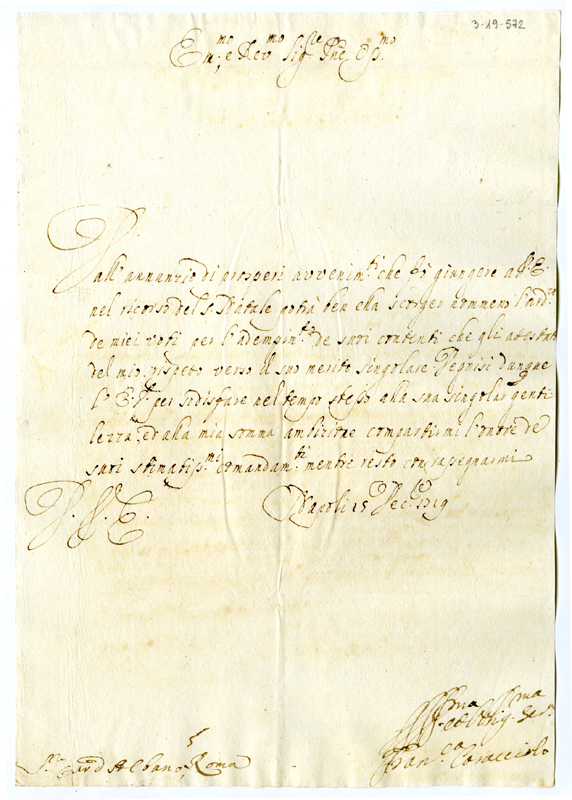 3-19-572
Em.mo e Rev.mo Sig.re Pne Oss.mo
Dall'annunzio di prosperi avvenim.ti che fò giungere a V. E.
nel ricorso del S. Natale potrà ben ella scorger nommeno l'ard.re
de miei voti per l'adempim.to de suoi contenti che gli attestati
del mio rispetto verso il suo merito singolare Degnisi dunque
l'E. V. per sodisfare nel tempo stesso alla sua singolar genti
lezza, ed alla mia somma ambizione compartirmi l'onore de
suoi stimatiss.mi comandam.ti mentre resto con rasegnarmi
D. V. E.
Napoli 15 Dec.re 1719
Fran.ca Caracciolo
S.r Card Albano, Roma